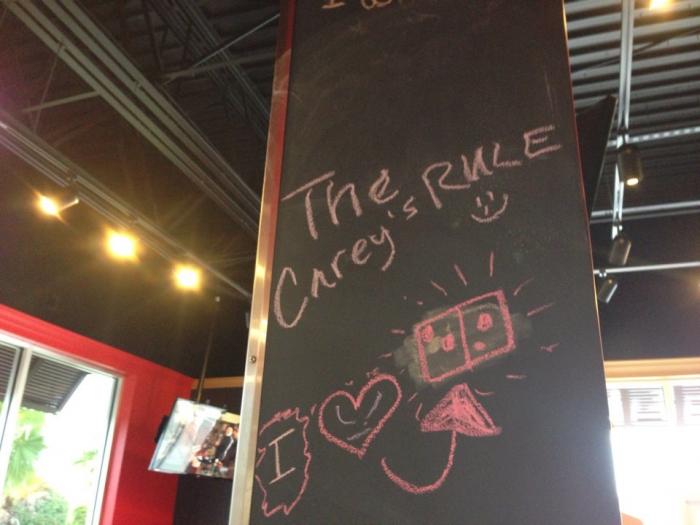 The
Carey's RULE
I